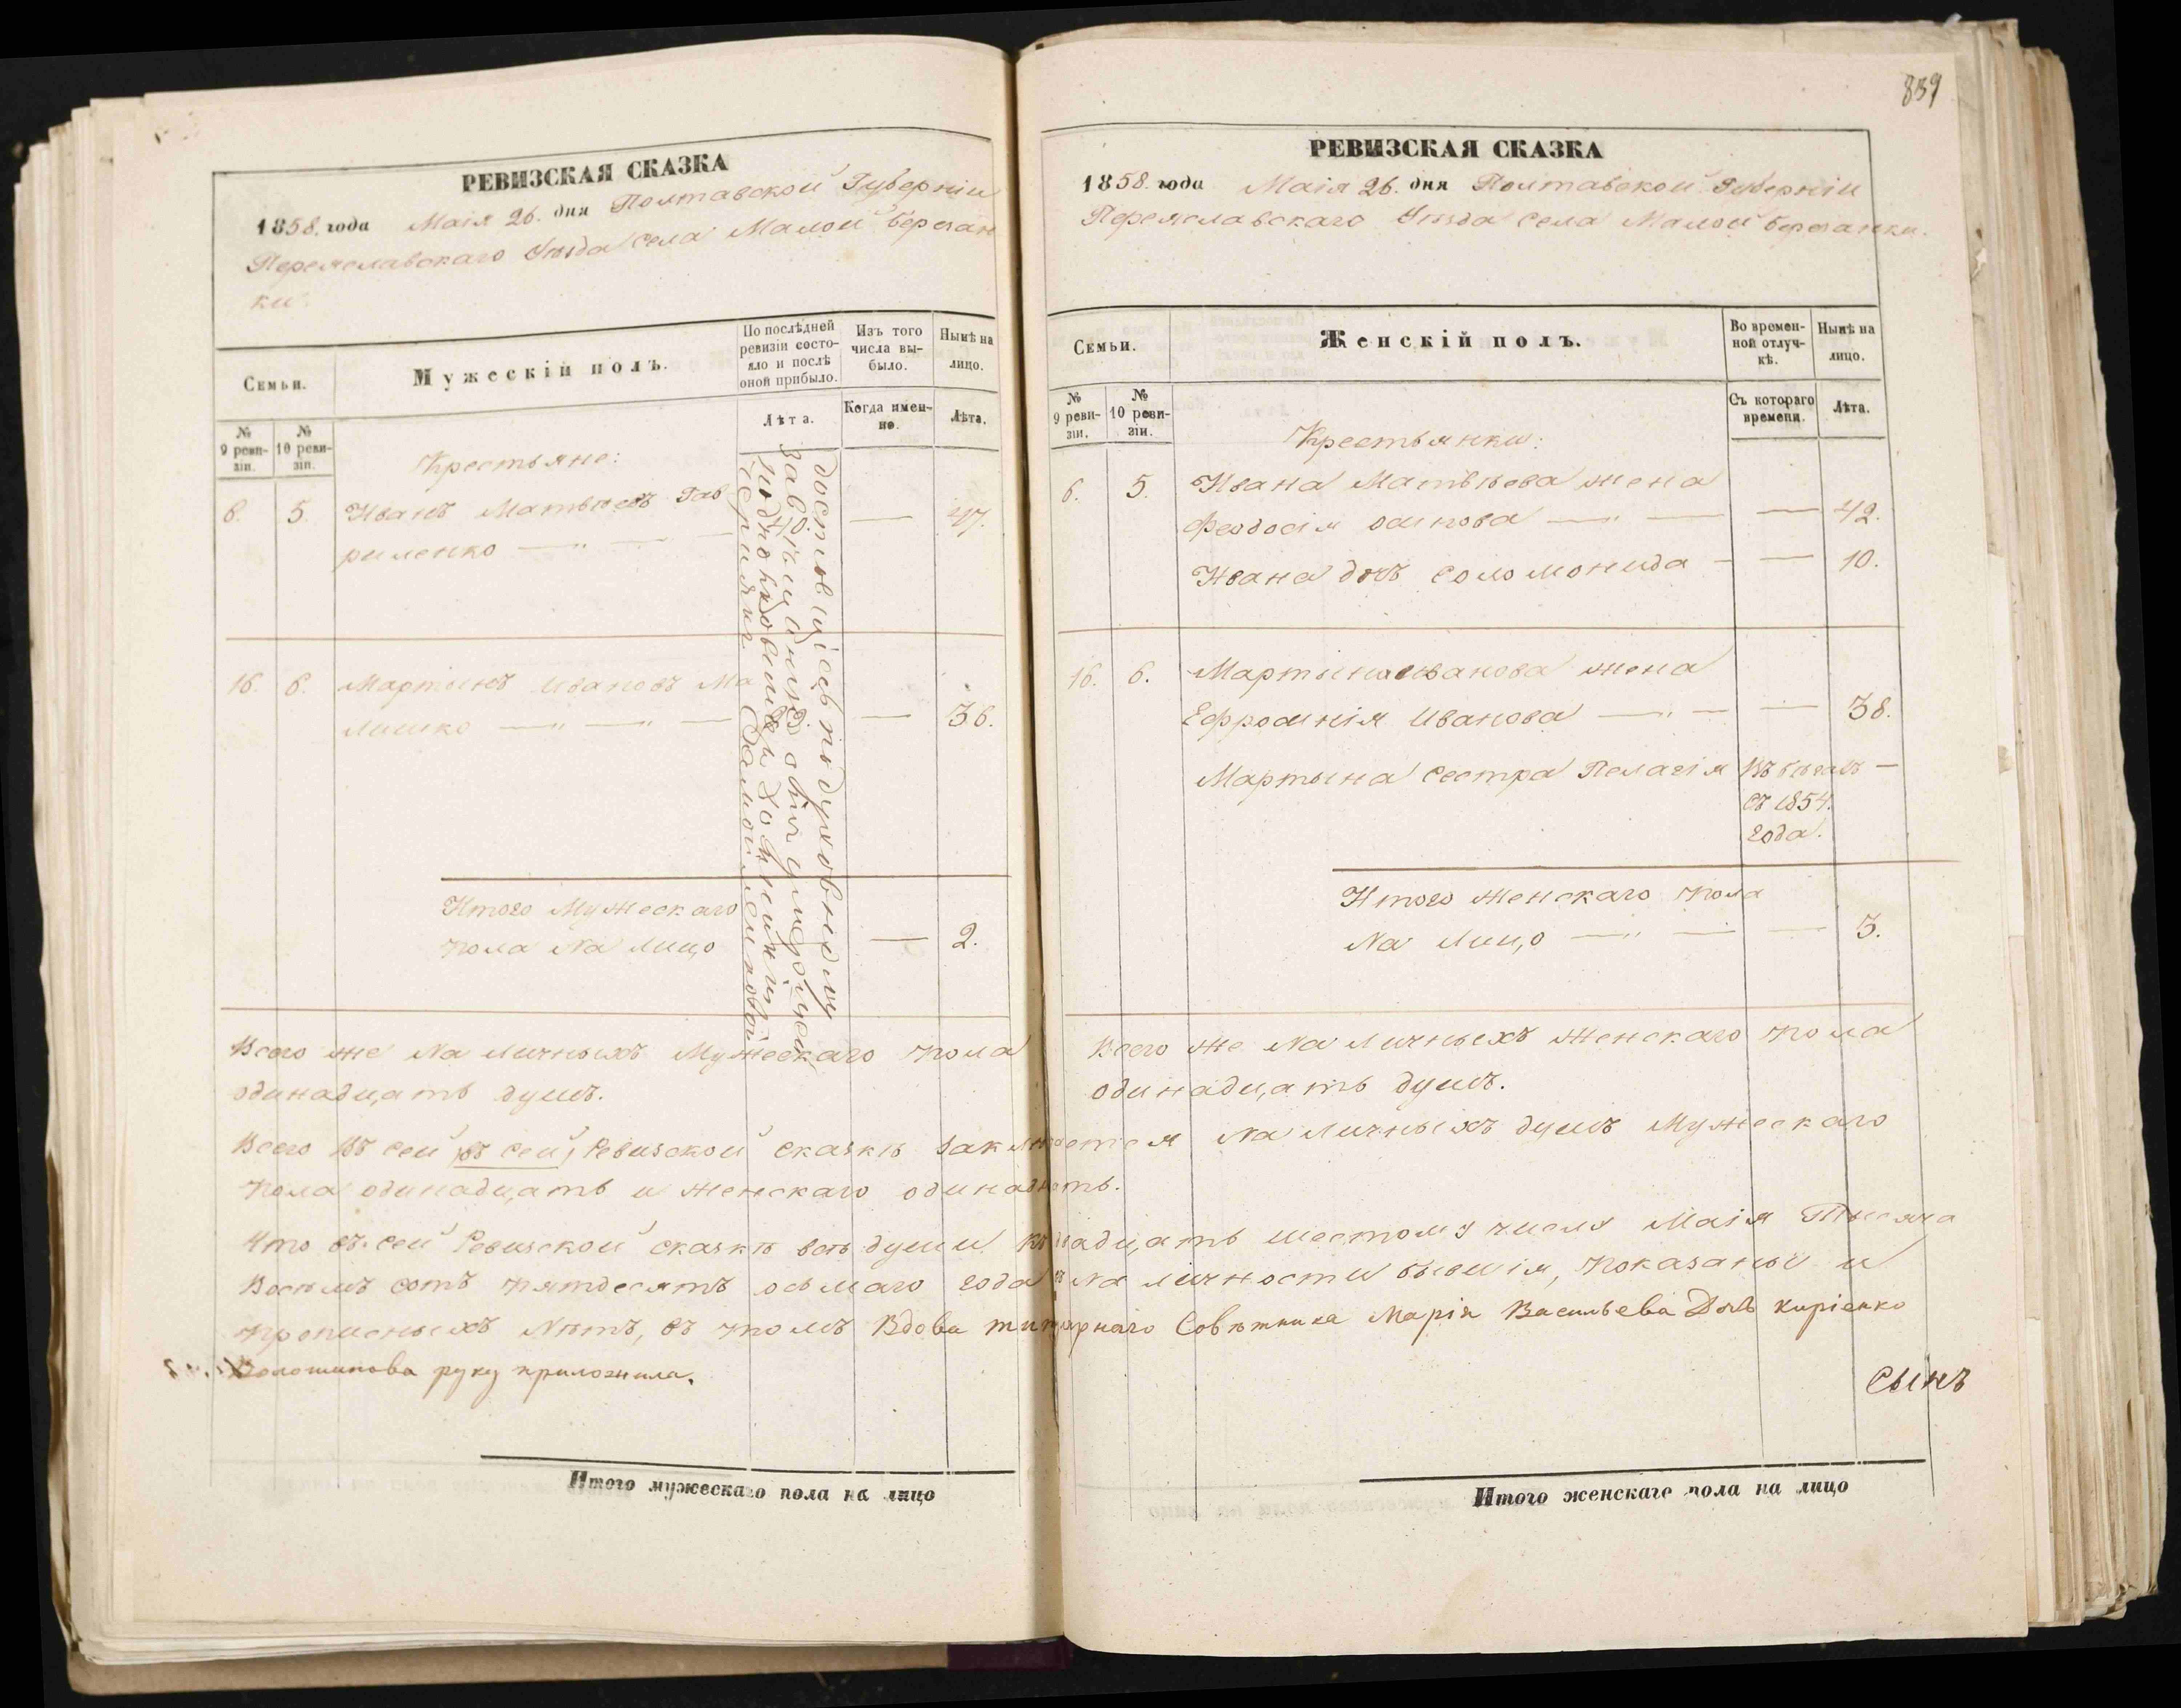 839
РЕВИЗСКАЯ СКАЗКА
1858. года Маія 26. дня Полтавской Губерніи
Переяславскаго Уѣзда Села Малой березан
ки.
Семьи.
Мужескій полъ.
По послѣдней ревизіи состояло и послѣ оной прибыло.
Изъ того числа выбыло.
Нынѣ на лицо.
№ 9 ревизіи.
№ 10 ревизіи.
Лѣта.
Когда именно.
Лѣта.
Крестьяне:
6. 5. Иванъ Матвѣевъ Гав — 47.
риленко — " — —
16. 6. Мартынъ Ивановъ Ма
лишко — " — " — — 36.
доставшіесь по духовному
завѣщанію отъ умершей
подполковницы
Итого Мужескаго
пола на лицо — 2.
Всего же на личныхъ Мужескаго пола
одинадцать душъ.
РЕВИЗСКАЯ СКАЗКА
1858. года Маія 26. дня Полтавской Губерніи
Переяславскаго Уѣзда Села Малой березанки.
Семьи.
Женскій полъ.
Во временной отлучкѣ.
Нынѣ на лицо.
№ 9 ревизіи.
№ 10 ревизіи.
Съ котораго времени.
Лѣта.
Крестьянки:
6. 5. Ивана Матвѣева жена
Феодосія Осипова — " — — 42.
Ивана дочь Соломонида — — 10.
16. 6. Мартына Иванова жена
Ефросинія Иванова — " — — 38.
Мартына сестра Пелагія Въ бѣгахъ —
съ 1854.
года.
Итого Женскаго пола
на лицо — " — — 3.
Всего же на личныхъ Женскаго пола
одинадцать душъ.
Всего въ сей въ сей, Ревизской Сказкѣ заключается на личныхъ душъ Мужескаго
пола одинадцать и Женскаго одинадцать.
Что въ сей Ревизской сказкѣ всѣ души къ двадцать шестому числу Маія Тысяча
Восемь сотъ пятдесятъ осьмаго года въ на личности бывшія, показаны и
прописныхъ нѣтъ, въ томъ Вдова титулярнаго Совѣтника Марія Васильева Дочь Киріенко
Волошинова руку приложила.
Сынъ
Итого мужескаго пола на лицо
Итого женскаго пола на лицо